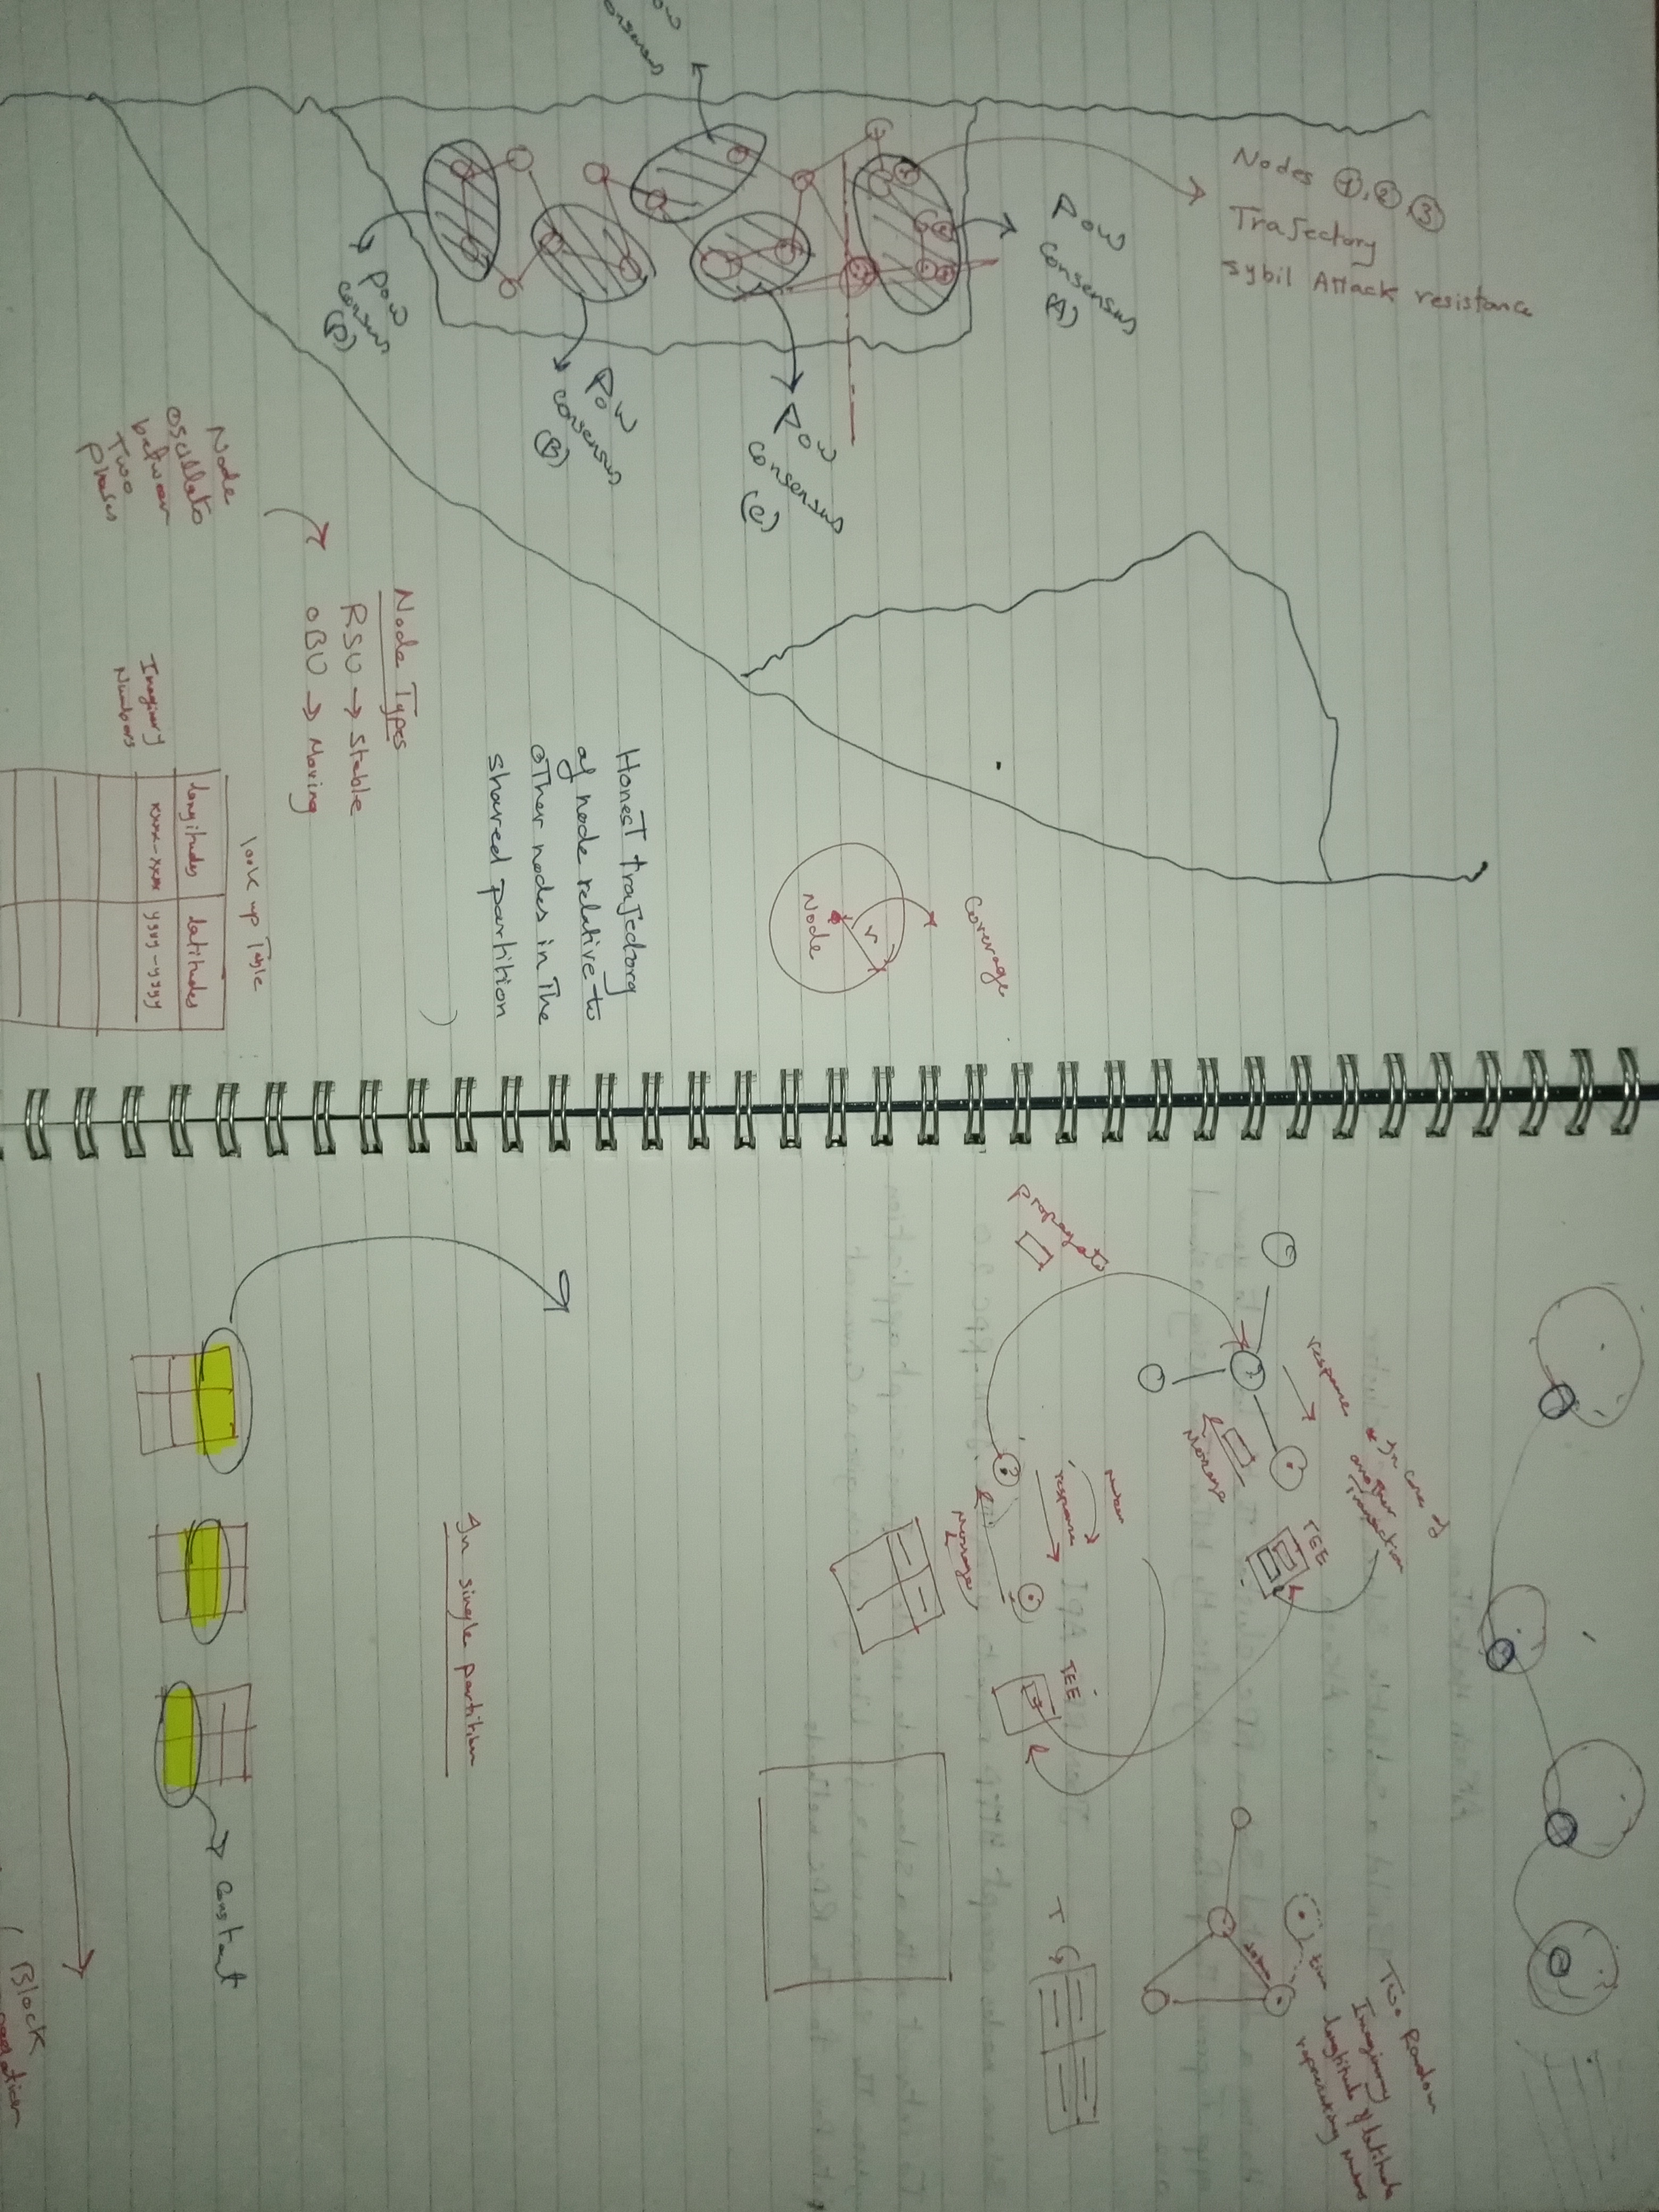 Nodes ①,②,③
Trajectory
Sybil Attack resistance
Pow
consensus
(A)
Pow
consensus
(C)
Pow
consensus
(B)
Pow
consensus
(D)
ow
onsensus
Coverage
r
Node
Honest trajectory
of node relative to
other nodes in The
shared partition
Node Types
RSU → Stable
OBU → Moving
Node
oscillate
between
Two
phases
look up Table
longitudes
latitudes
xxxx-xxxx
yyyy-yyyy
Imaginary
Numbers
Two Random
Imaginary
longtitude & latitude
representing
response
* In case of
another
Transaction
TEE
Message
propagate
response
Message
TEE
T
In single partition
Constant
Block